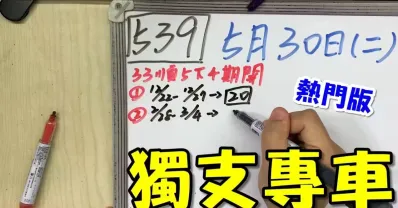 539 5月30日(二)
33順5下4期開
① 12/22-12/27→20
② 2/28-3/4→
熱門版
獨支專車